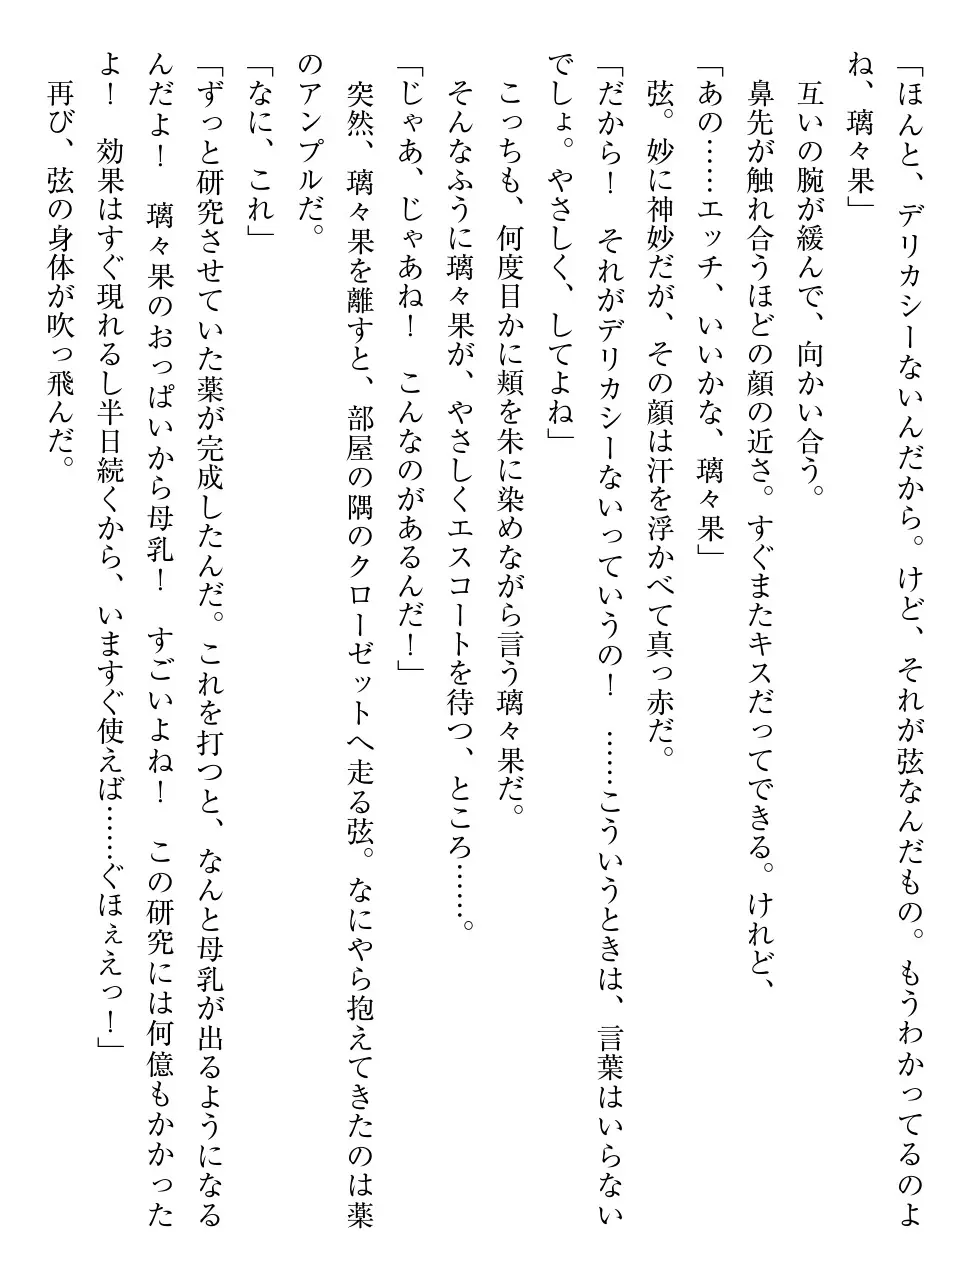 「ほんと、デリカシーないんだから。けど、それが弦なんだもの。もうわかってるのよ
ね、璃々果」
互いの腕が緩んで、向かい合う。
鼻先が触れ合うほどの顔の近さ。すぐまたキスだってできる。けれど、
「あの……エッチ、いいかな、璃々果」
弦。妙に神妙だが、その顔は汗を浮かべて真っ赤だ。
「だから！　それがデリカシーないっていうの！　……こういうときは、言葉はいらない
でしょ。やさしく、してよね」
こっちも、何度目かに頬を朱に染めながら言う璃々果だ。
そんなふうに璃々果が、やさしくエスコートを待つ、ところ……。
「じゃあ、じゃあね！　こんなのがあるんだ！」
突然、璃々果を離すと、部屋の隅のクローゼットへ走る弦。なにやら抱えてきたのは薬
のアンプルだ。
「なに、これ」
「ずっと研究させていた薬が完成したんだ。これを打つと、なんと母乳が出るようになる
んだよ！　璃々果のおっぱいから母乳！　すごいよね！　この研究には何億もかかった
よ！　効果はすぐ現れるし半日続くから、いますぐ使えば……ぐほぇえっ！」
再び、弦の身体が吹っ飛んだ。